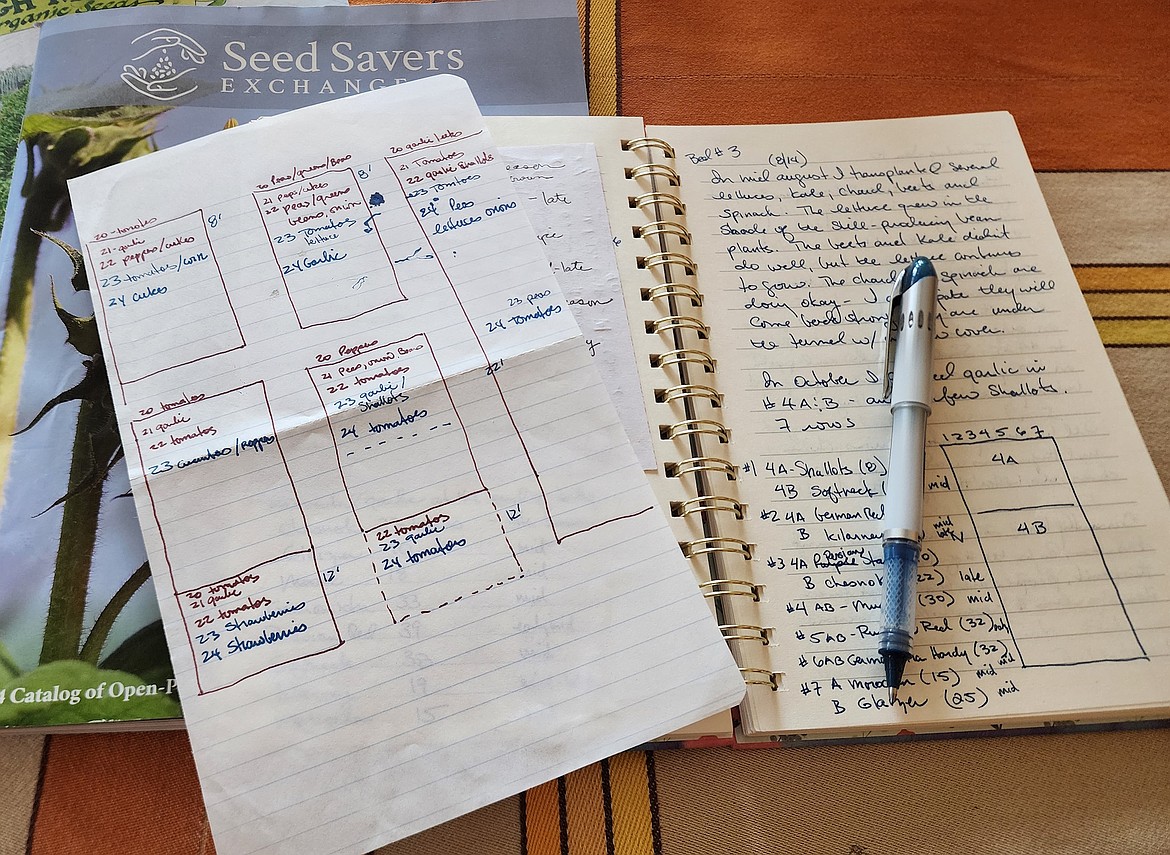 Organic Seeds
Seed Savers
EXCHANGE
4 Catalog of Open-P
20 - tomatoes
21 garlic
22 peppers/cukes
23 tomatoes/corn
24 cukes
8'
20 Peas/greens/Beans
21 Peps/cukes
22 peas/greens
beans, onion
23 Tomatoes
lettuce
24 Garlic
8'
20 garlic/leeks
21 Tomatoes
22 garlic shallots
23 Tomatoes
24 Peas
lettuces onions
23 peas
24 tomatoes
22'
20 tomatoes
21 garlic
22 tomatoes
23 /Peppers
20 Peppers
21 Peas, onions Beans
22 tomatoes
23 garlic/
Shallots
24 tomatoes
22 tomatoes
23 garlic
24 tomatoes
12'
20 tomatoes
21 garlic
22 tomatoes
23 Strawberries
24 Strawberries
12'
eason
- late
-late
eason
y
Bed #3 (8/14)
In mid august I transplanted several
lettuces, kale, chard, beets and
spinach. The lettuce grew in the
shade of the still-producing bean
plants. The beets and kale didn't
do well, but the lettuce continues
to grow. The chard spinach are
doing okay - I pate they will
come back stron y are under
the tunnel w/ w cover.
In October I ed garlic in
#4 A & B - a few Shallots.
7 rows
1 2 3 4 5 6 7
4A
4B
#1 4A - Shallots (8)
4B Softneck ( mid
#2 4A German Red mid
B Kilarney mid late
#3 4A Persian Sta 0)
B Chesnok (22) late
#4 AB - Mu (30) mid
#5 AB - Red (32) mid
#6AB Germa na Hardy (32) mid
#7 A Moroccan (15) mid
B Glazer (25) mid